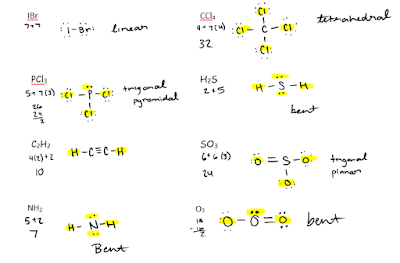 IBr
7+7
I-Br:
linear
CCl4
4+7(4)
32
Cl
Cl C Cl
Cl
tetrahedral
PCl3
5+7(3)
26
24
2
Cl-P-Cl
Cl
trigonal
pyramidal
H2S
2+5
H-S-H
bent
C2H2
4(2)+2
10
H-C≡C-H
SO3
6+6(3)
24
O=S-O
O
trigonal
planar
NH2
5+2
7
H-N-H
Bent
O3
18
2
O-O=O
bent